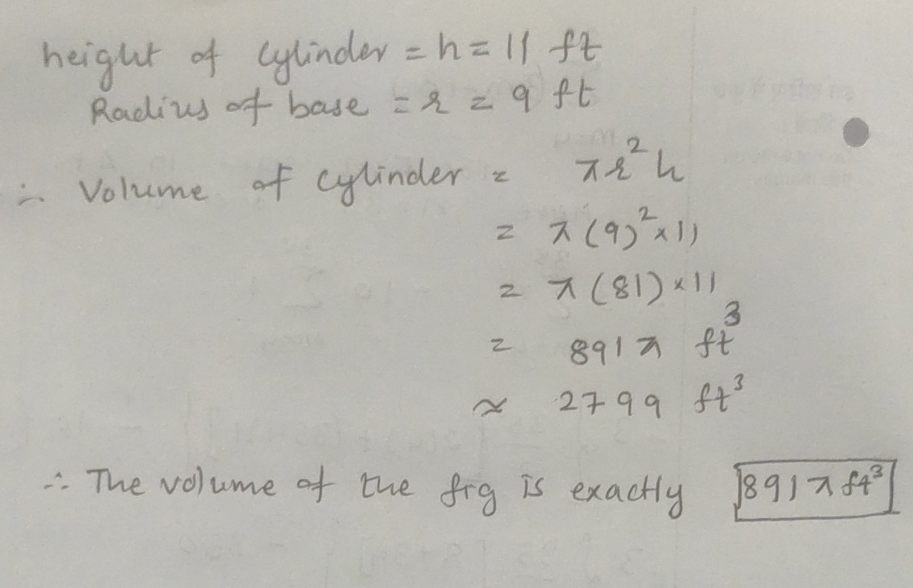 height of cylinder = h = 11 ft
Radius of base = r = 9 ft
∴ Volume of cylinder = πr²h
= π(9)²×11
= π(81)×11
= 891π ft³
≈ 2799 ft³
∴ The volume of the fig is exactly 891π ft³